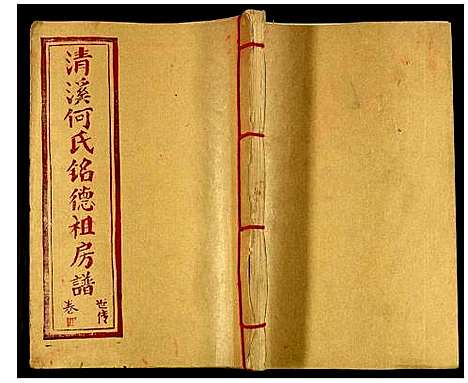 清溪何氏铭德祖房譜
世传
卷四